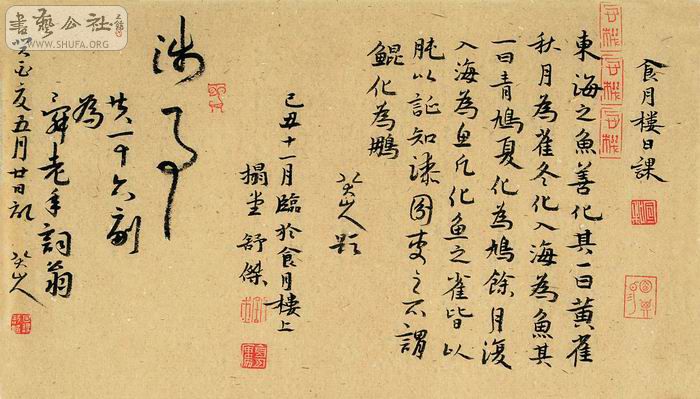 食月楼日課
東海之魚善化其一曰黄雀
秋月為雀冬化入海為魚其
一曰青鳩夏化為鳩餘月復
入海為魚凡化魚之雀皆以
肫以証知漆園吏之所謂
鯤化為鵬
八大山人題
己丑十一月臨於食月樓上
舒傑
涉事
共一十六副
為
舜老年詞翁
癸酉夏五月廿日記 八大山人
書藝公社
WWW.SHUFA.ORG